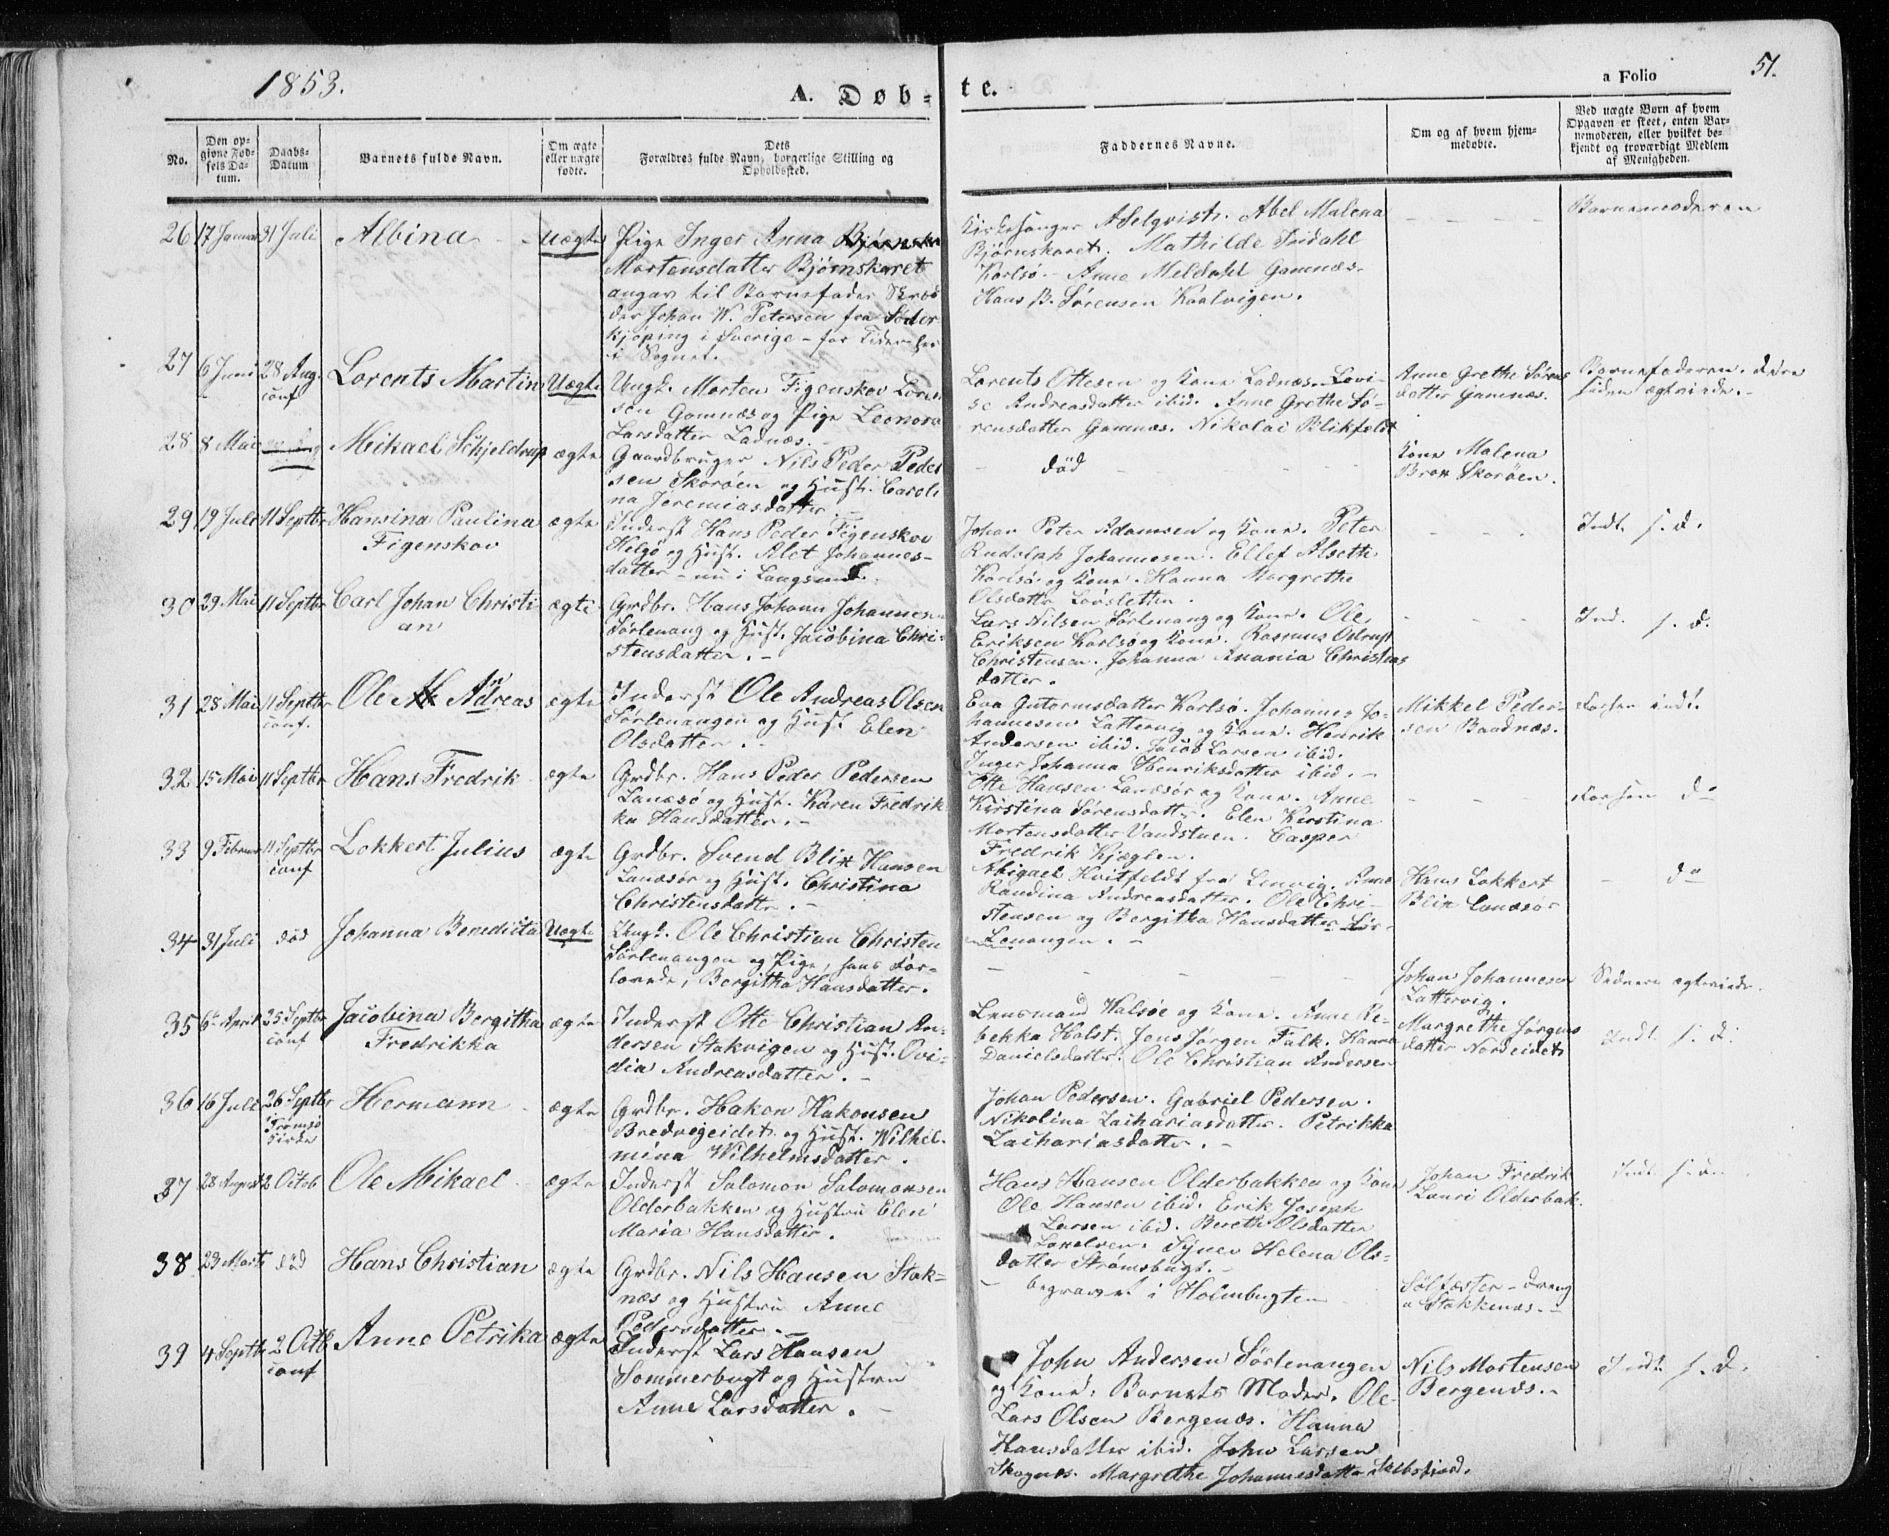 1853.
A. Døb-
te.
a Folio
51.
No.
Den op-
givne Fød-
sels Da-
tum.
Daabs-
Datum
Barnets fulde Navn.
Om ægte
eller uægte
fødte.
Dets
Forældres fulde Navn, borgerlige Stilling og
Opholdssted.
Faddernes Navne.
Om og af hvem hjem-
medøbte.
Ved uægte Børn af hvem
Opgaven er skeet, enten Bar-
nemoderen, eller hvilket be-
kjendt og troværdigt Medlem
af Menigheden.
26 17 Januar 31 Juli Albina Uægte
Pige Inger Anna
Mortensdatter Bjørnskaret
angav til Barnefader Skræd
der Johan W. Petersen fra Søder
kjøping i Sverige - for Tiden her
i Sognet.
Kirkesanger Adelqvist. Abel Malena
Bjørnskaret. Mathilde Dridahl
Karlsø - Anne Meldahl Gamnæs.
Hans B. Sørensen Kvalvigen.
Barnemoderen
27 6 Juni 28 Aug.
conf
Lorents Martin Uægte
Ungk. Morten Figenskov Loren
sen Gamnæs og Pige Leonora
Larsdatter Ladnæs.
Lorents Ottesen og Kone Ladnæs. Lovi-
se Andreasdatter ibid. Anne Grethe Sø-
rensdatter Gamnæs. Nikolai Blikfeldt
Anne Grethe Sørens
datter Gamnæs.
Barnefaderen. dere
siden ægteviede.
28 8 Mai Mikael Schjeldrup ægte
Gaardbruger Nils Peder Peder
sen Skorøen og Hust. Caroli
na Jeremiasdatter
død
Kone Malena
Brox Skorøen.
29 19 Juli 11 Septbr Hansina Paulina
Figenskov
ægte
Inderst Hans Peder Figenskov
Helgø og Hust. Alet Johannes-
datter - nu i Langsund.
Johan Peter Adamsen og Kone. Peter
Rudolph Johannesen. Ellef Alseth
Karlsø og Kone. Hanna Margrethe
Olsdatter Løvsletten.
Indt. s. d.
30 29 Mai 11 Septbr Carl Johan Christi
an
ægte
Grdbr. Hans Johann Johannesen
Sørlenang og Hust. Jacobina Chri-
stensdatter.
Lars Nilsen Sørlenang og Kone. Ole
Eriksen Karlsø og Kone. Rasmus
Christensen. Johanna Anania Christens
datter.
Ind. s. d.
31 28 Mai 11 Septbr
conf.
Ole Andreas ægte
Inderst Ole Andreas Olsen
Sørlenangen og Hust Elen
Olsdatter.
Eva Gutormsdatter Karlsø. Johannes Jo-
hannesen Lattervig og Kone. Henrik
Andersen ibid. Jacob Larsen ibid.
Inger Johanna Henriksdatter ibid.
Mikkel Peder-
sen Baadnæs.
forsen indt.
32 15 Mai 11 Septbr Hans Fredrik ægte
Grdbr. Hans Peder Pedersen
Lanæsø og Hust. Karen Fredrik
ka Hansdatter.
Otte Hansen Lanæsør og Kone. Anne
Kirstina Sørensdatt. Elen Kirstina
Mortensdatter Vandstuen. Casper
Fredrik Kjæglen.
forsen do
33 9 Februar 11 Septbr
conf
Lokkert Julius ægte
Grdbr. Svend Blix Hansen
Lanæsør og Hust. Christina
Christensdatt.
Abigael Hvitfeldt fra Lenvig. Anne
Randina Andreasdatter. Ole Chri-
stensen og Bergitha Hansdatter Sør-
Lenangen.
Hans Lokkert
Blix Lanæsør
do
34 31 Juli død Johanna Benedicta Uægte
Ungk. Ole Christian Christen
Sørlenangen og Pige, hans For-
lovede, Bergitha Hansdatter.
Johan Johannesen
Lattervig.
Sednere ægteviede.
35 6 April 25 Septbr
conf
Jacobina Bergitha
Fredrikka
ægte
Inderst Otte Christian An-
dersen Stakvigen og Hust. Ovi-
dia Andreasdatter.
Lensmand Walsøe og Kone. Anne Re-
bekka Holst. Jens Jørgen Falk. Hanna
Danielsdatter. Ole Christian Andersen
Margrethe Jørgens
datter Nordeidet
Indt. s. d.
36 16 Juli 26 Septbr
Tromsø
Kirke
Hermann ægte
Grdbr. Hakon Hakonsen
Bredvigeidet og Hust. Wilhel-
mina Wilhelmsdatter.
Johan Pedersen. Gabriel Pedersen.
Nikolina Zachariasdatter. Petrikka
Zachariasdatter.
37 28 August 2 Octob Ole Mikael ægte
Inderst Salomon Salomonsen
Olderbakken og Hustru Elen
Maria Hansdatter.
Hans Hansen Olderbakken og Kone
Ole Hansen ibid. Erik Joseph
Larsen ibid. Bereth Olsdatter
Laxelven. Synev Helena Ols-
datter Strømsbugt.
Johan Fredrik
Lauri Olderbak.
Indt
38 23 Marts død Hans Christian ægte
Grdbr. Nils Hansen Stok-
næs og Hustru Anne
Pedersdatter.
begravet i Holmbugten
Søltæster - dreng
Stokkenæs.
39 4 Septbr 2 Octb
conf
Anne Petrika ægte
Inderst Lars Hansen
Sommerbugt og Hustru
Anne Larsdatter.
John Andersen Sørlenangen
og Kone: Barnets Moder. Ole
Lars Olsen Bergenæs. Hanna
Hansdatter ibid. John Larsen
Skognæs. Margrethe Johannesdatter
Nils Mortensen
Bergenæs.
Indt. s. d.